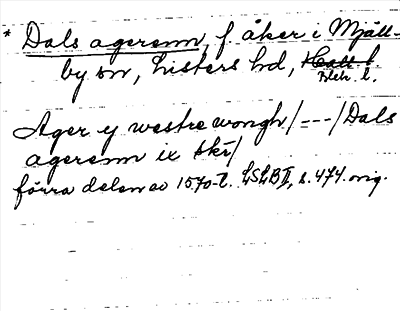 * Dals agerenn, f. åker i Mjäll-
by sn, Listers hd, Hall. l.
Blek. l.
Ager y westre wongh/---/Dals
agerenn ix skr/
förra delen av 1570-t. LSLB II, s. 474. orig.